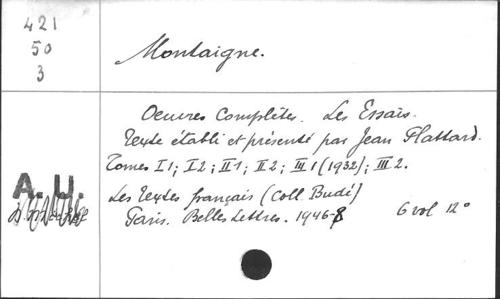 421
50
3
Montaigne.
Oeuvres Complètes. Les Essais.
Texte établi et présenté par Jean Plattard.
Tomes I 1; I 2; II 1; II 2; III 1 (1932); III 2.
A. U.
Les Textes français (Coll. Budé)
Paris. Belles Lettres. 1946-8 6 vol 12°